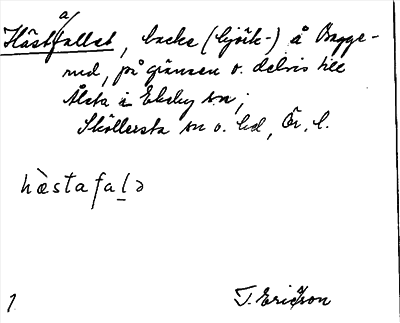 Hästafallet, backe (björk-) å Bagge-
rud, på gränsen o. delvis till
Älsta i Ekeby sn;
Sköllersta sn o. hd, Ör. l.
hὲstafaḻə
1
T. Ericsson